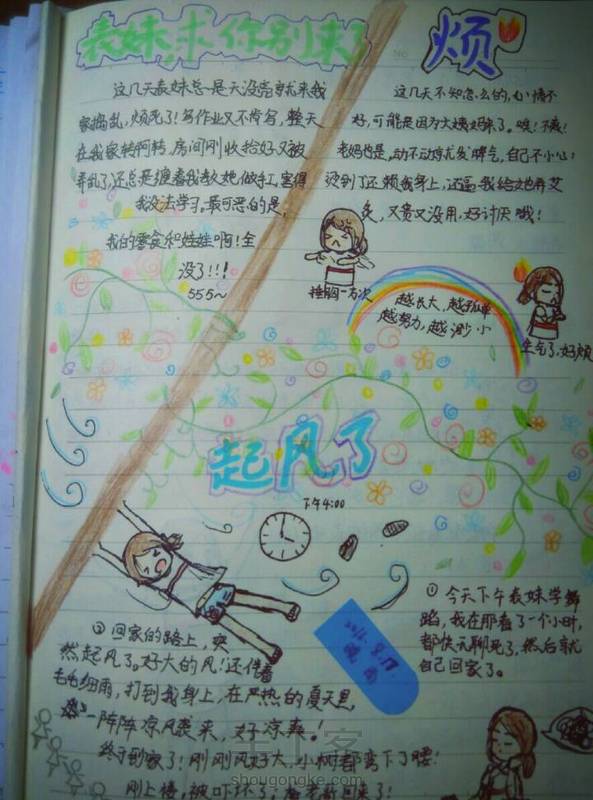 表妹,求你别来了
这几天表妹总是天没完有就来我
家捣乱,烦死了!写作业又不肯写,整天
在我家转阿转,房间刚收拾好又被
弄乱了,还总是缠着我教她做手工,害得
我没法学习。最可恶的是,
我的零食和娃娃啊!全
没了!!!
555~
烦
这几天不知怎么的,心情不
好,可能是因为大姨妈来了。唉!不爽!
老妈也是,动不动就发脾气,自己不小心
烫到了还赖我身上,还逼我给她弄艾
灸,又贵又没用,好讨厌哦!
捶胸一万次
越长大,越孤单
越努力,越渺小
生气了,好烦
起风了
下午4:00
①今天下午表妹学舞
蹈,我在那看了一个小时,
都快无聊死了,然后就
自己回家了。
8.17
晚
②回家的路上,突
然起风了。好大的风!还伴着
毛毛细雨,打到我身上,在严热的夏天里,
一阵阵凉风袭来,好凉爽!
终于到家了!刚刚风好大,小树都弯下了腰!
刚上楼,被吓坏了,
回来了!
手工客
shougongke.com